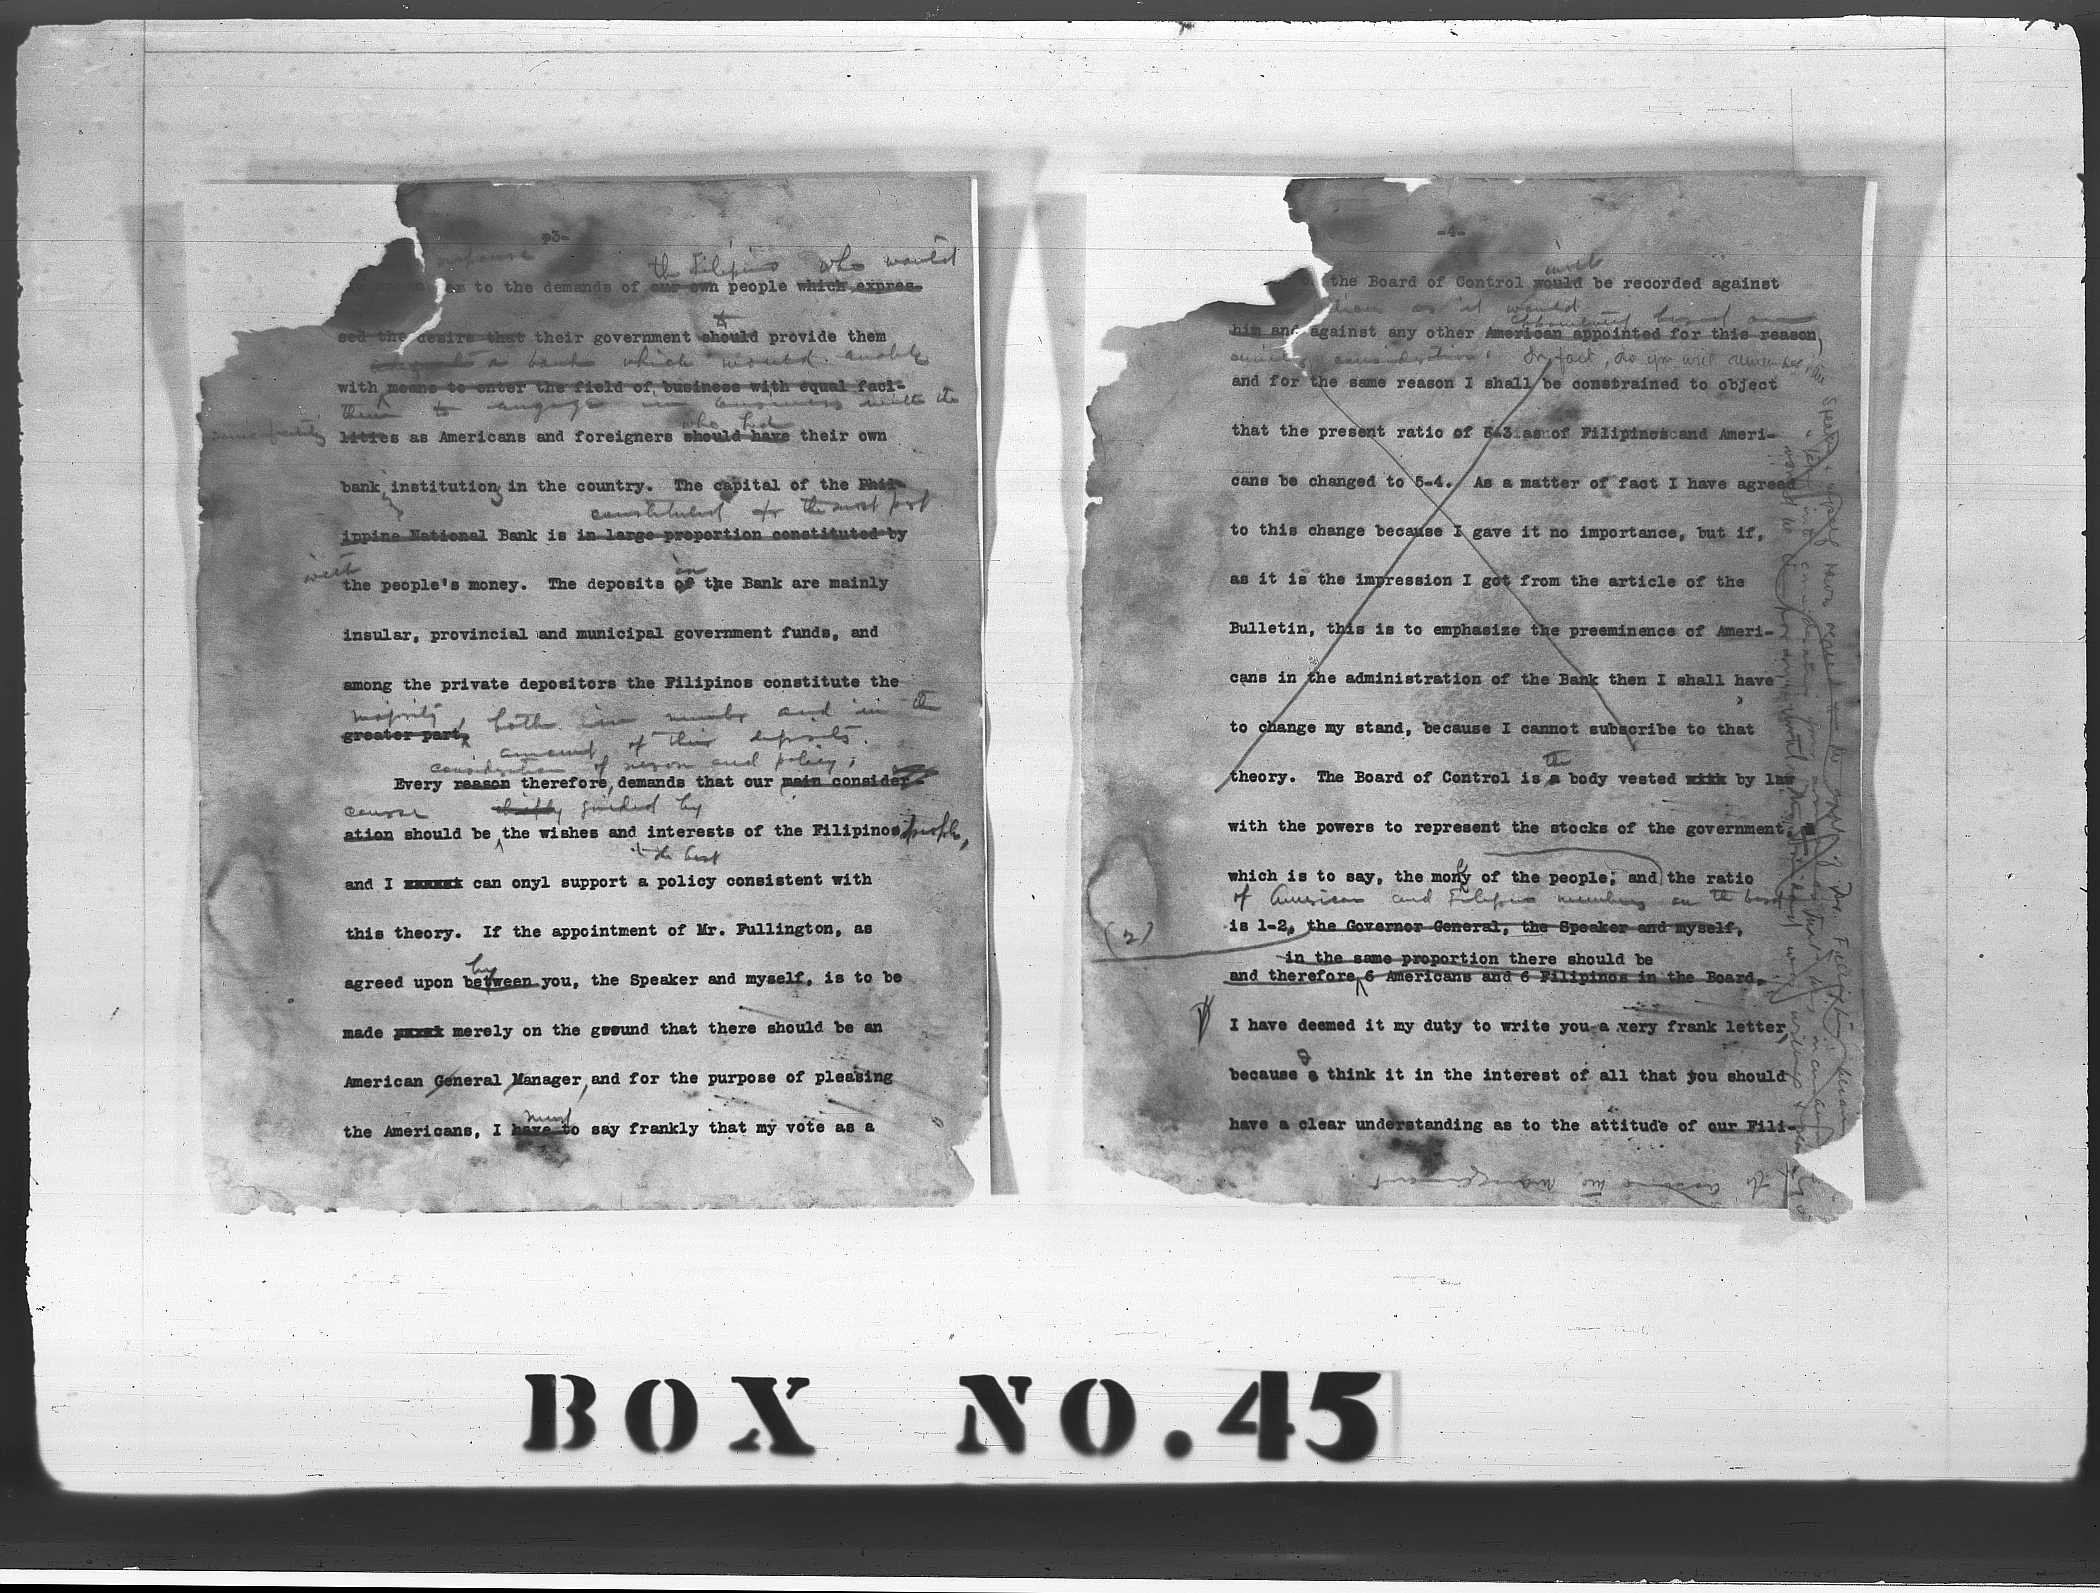 -3-
response
the Filipino who would
to the demands of our own people which expres-
sed the desire that their government should provide them
a bank which would enable
with means to enter the field of business with equal faci-
them to engage in business with the
same facility
who had
lities as Americans and foreigners should have their own
bank institution in the country. The capital of the Phil-
constituted for the most part
ippine National Bank is in large proportion constituted by
with
in
the people's money. The deposits of the Bank are mainly
insular, provincial and municipal government funds, and
among the private depositors the Filipinos constitute the
majority both in number and in the
greater part.
amount of their deposits.
consideration of reason and policy,
Every reason therefore, demands that our main consider-
course chiefly guided by
ation should be the wishes and interests of the Filipinos people,
the best
and I can onyl support a policy consistent with
this theory. If the appointment of Mr. Fullington, as
by
agreed upon between you, the Speaker and myself, is to be
made merely on the ground that there should be an
American General Manager, and for the purpose of pleasing
must
the Americans, I have to say frankly that my vote as a
-4-
will
the Board of Control would be recorded against
as it would
appointment based on
him and against any other American appointed for this reason,
consideration. In fact, as you will remember, the
and for the same reason I shall be constrained to object
that the present ratio of 5-3 as of Filipinos and Ameri-
cans be changed to 5-4. As a matter of fact I have agreed
to this change because I gave it no importance, but if,
as it is the impression I got from the article of the
Bulletin, this is to emphasize the preeminence of Ameri-
cans in the administration of the Bank then I shall have
to change my stand, because I cannot subscribe to that
the
theory. The Board of Control is a body vested with by law
with the powers to represent the stocks of the government
which is to say, the money of the people; and the ratio
of American and Filipino members on the board
(2)
is 1-2, the Governor General, the Speaker and myself,
in the same proportion there should be
and therefore 6 Americans and 6 Filipinos in the Board.
I have deemed it my duty to write you a very frank letter,
because I think it in the interest of all that you should
have a clear understanding as to the attitude of our Fili-
to assume the management
BOX NO.45